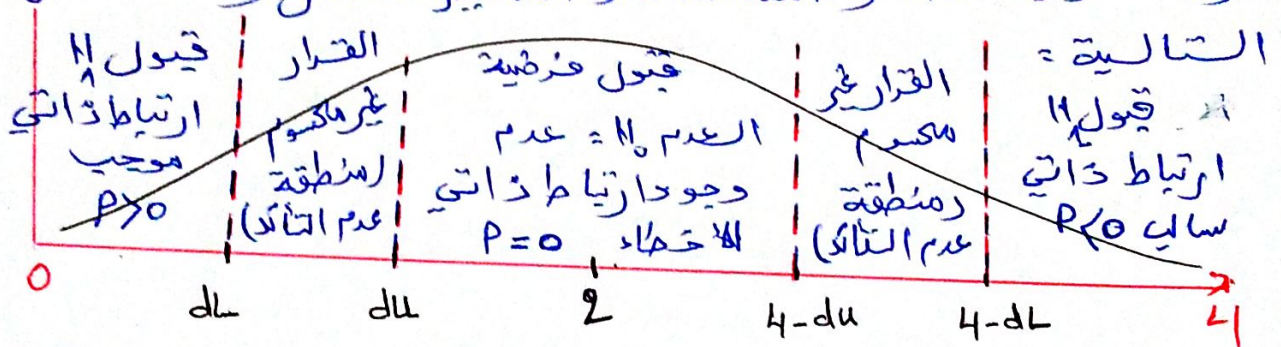 التالية:
قبول H₁
ارتباط ذاتي
موجب
ρ>0
القرار
غير محسوم
(منطقة
عدم التأكد)
قبول فرضية
العدم H₀: عدم
وجود ارتباط ذاتي
للأخطاء ρ=0
القرار غير
محسوم
(منطقة
عدم التأكد)
قبول H₁
ارتباط ذاتي
سالب ρ<0
0 dL dU 2 4-dU 4-dL 4